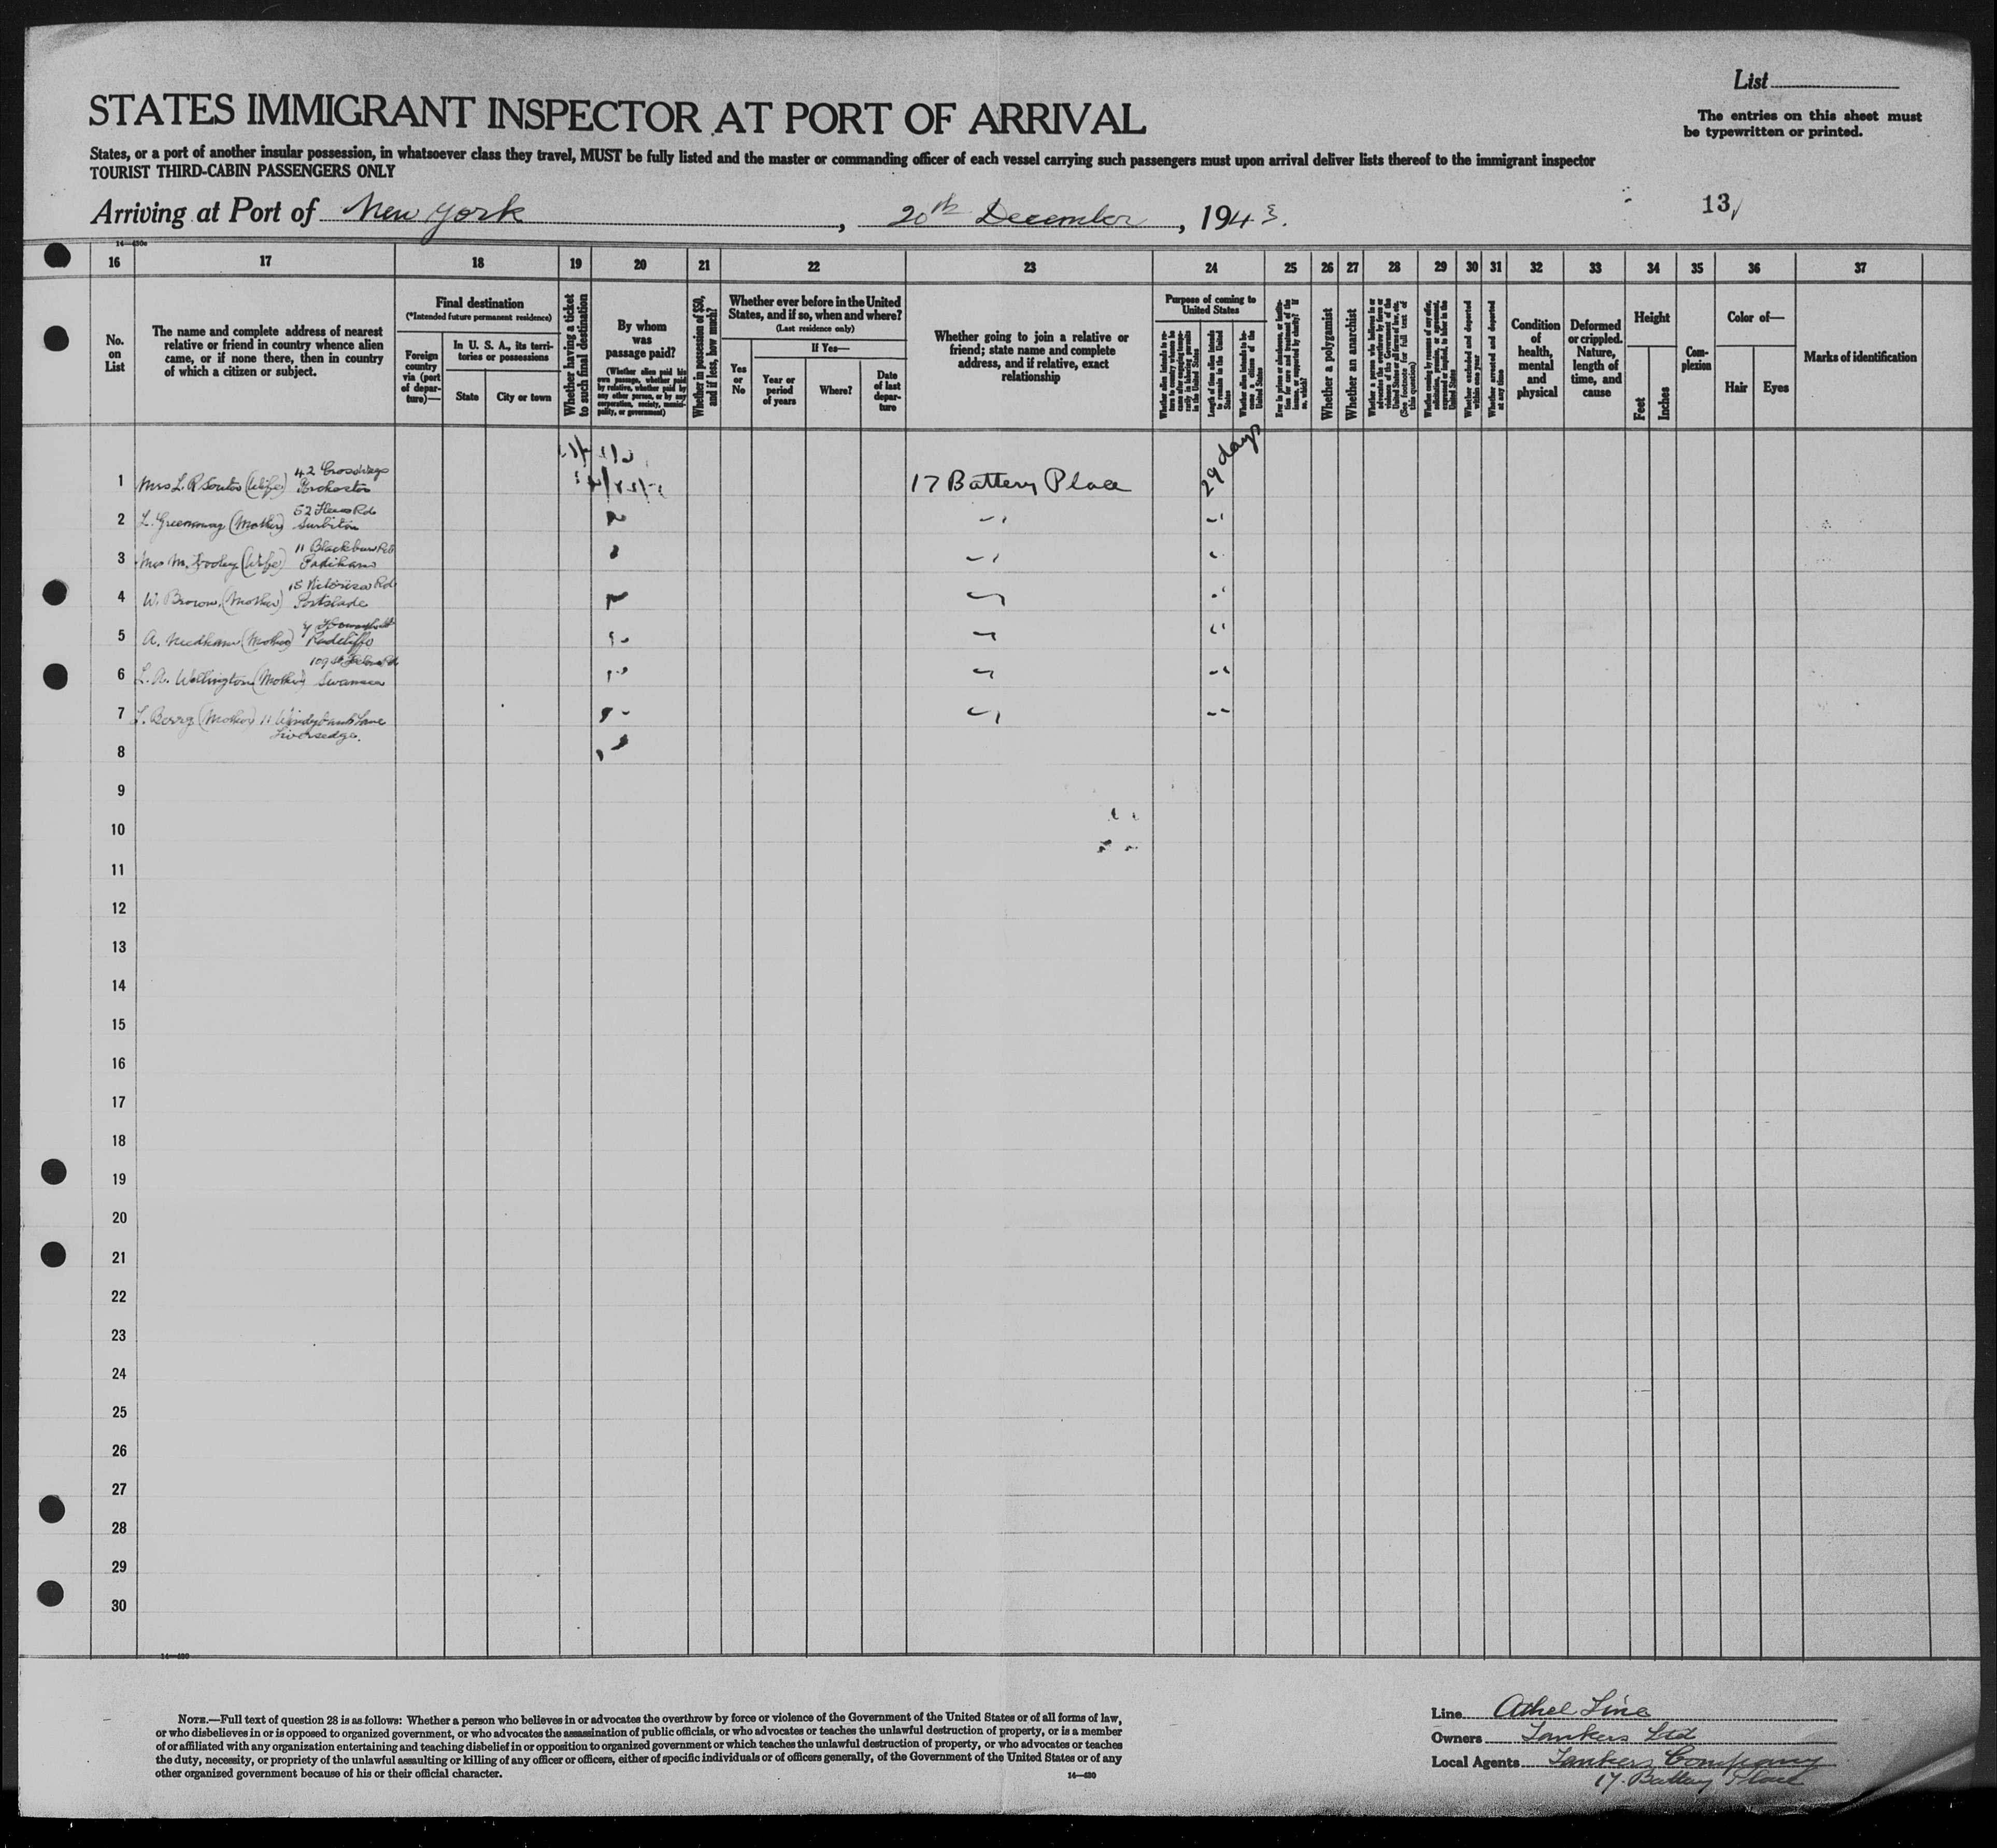 List
STATES IMMIGRANT INSPECTOR AT PORT OF ARRIVAL
The entries on this sheet must
be typewritten or printed.
States, or a port of another insular possession, in whatsoever class they travel, MUST be fully listed and the master or commanding officer of each vessel carrying such passengers must upon arrival deliver lists thereof to the immigrant inspector
TOURIST THIRD-CABIN PASSENGERS ONLY
Arriving at Port of New York, 20th December, 1943.
13
14—430c
16 17 18 19 20 21 22 23 24 25 26 27 28 29 30 31 32 33 34 35 36 37
No. on List
The name and complete address of nearest
relative or friend in country whence alien
came, or if none there, then in country
of which a citizen or subject.
Final destination
(*Intended future permanent residence)
Foreign country via (port of departure)—
In U. S. A., its territories or possessions
State
City or town
Whether having a ticket to such final destination
By whom was passage paid?
(Whether alien paid his own passage, whether paid by relative, whether paid by any other person, or by any corporation, society, municipality, or government)
Whether in possession of $50, and if less, how much?
Whether ever before in the United States, and if so, when and where?
(Last residence only)
Yes or No
If Yes—
Year or period of years
Where?
Date of last departure
Whether going to join a relative or
friend; state name and complete
address, and if relative, exact
relationship
Purpose of coming to United States
Whether alien intends to return to country whence he came after engaging temporarily in laboring pursuits in the United States
Length of time alien intends to remain in the United States
Whether alien intends to become a citizen of the United States
Ever in prison or almshouse, or institution for care and treatment of the insane, or supported by charity? If so, which?
Whether a polygamist
Whether an anarchist
Whether a person who believes in or advocates the overthrow by force or violence of the Government of the United States or all forms of law, etc. (See footnote for full text of this question)
Whether coming by reason of any offer, solicitation, promise, or agreement, expressed or implied, to labor in the United States
Whether excluded and deported within one year
Whether arrested and deported at any time
Condition of health, mental and physical
Deformed or crippled. Nature, length of time, and cause
Height
Feet
Inches
Complexion
Color of—
Hair
Eyes
Marks of identification
1 Mrs L. R. (Wife) 42
17 Battery Place
29 days
2 L. Greenway (Mother) 52 Rd Surbiton
3 Mrs M. (Wife) 11 Blackburn Rd Padiham
4 W. Brown (Mother) 15 Victoria Rd Portslade
5 A. Needham (Mother) Radcliffe
6 L. A. Wellington (Mother) 109 St Rd Swansea
7 Berry (Mother) 11 Lane
Liversedge.
8
9
10
11
12
13
14
15
16
17
18
19
20
21
22
23
24
25
26
27
28
29
30
14—430
NOTE.—Full text of question 28 is as follows: Whether a person who believes in or advocates the overthrow by force or violence of the Government of the United States or of all forms of law,
or who disbelieves in or is opposed to organized government, or who advocates the assassination of public officials, or who advocates or teaches the unlawful destruction of property, or is a member
of or affiliated with any organization entertaining and teaching disbelief in or opposition to organized government or which teaches the unlawful destruction of property, or who advocates or teaches
the duty, necessity, or propriety of the unlawful assaulting or killing of any officer or officers, either of specific individuals or of officers generally, of the Government of the United States or of any
other organized government because of his or their official character.
14—430
Line Athel Line
Owners Tankers Ltd
Local Agents Tankers Company
17. Battery Place